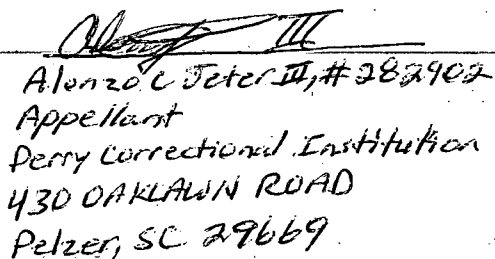 III
Alonzo C Jeter III, #282902
Appellant
Perry Correctional Institution
430 OAKLAWN ROAD
Pelzer, SC 29669